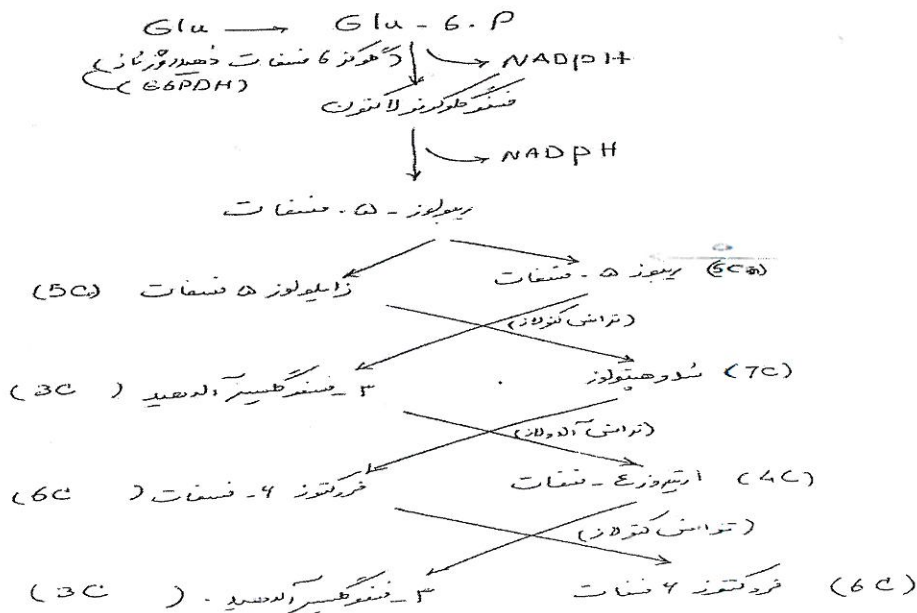 Glu → Glu - 6 - P
(گلوکز 6 فسفات دهیدروژناز) → NADPH
(G6PDH)
فسفوگلوکونولاکتون
→ NADPH
ریبولوز - ۵ - فسفات
(5C) زایلولوز ۵ فسفات ریبوز ۵ - فسفات (5C)
(ترانس کتولاز)
(3C) ۳ - فسفوگلیسرآلدهید سدوهپتولوز (7C)
(ترانس آلدولاز)
(6C) فروکتوز ۶ - فسفات اریتروز ۴ - فسفات (4C)
(ترانس کتولاز)
(3C) ۳ - فسفوگلیسرآلدهید . فروکتوز ۶ فسفات (6C)